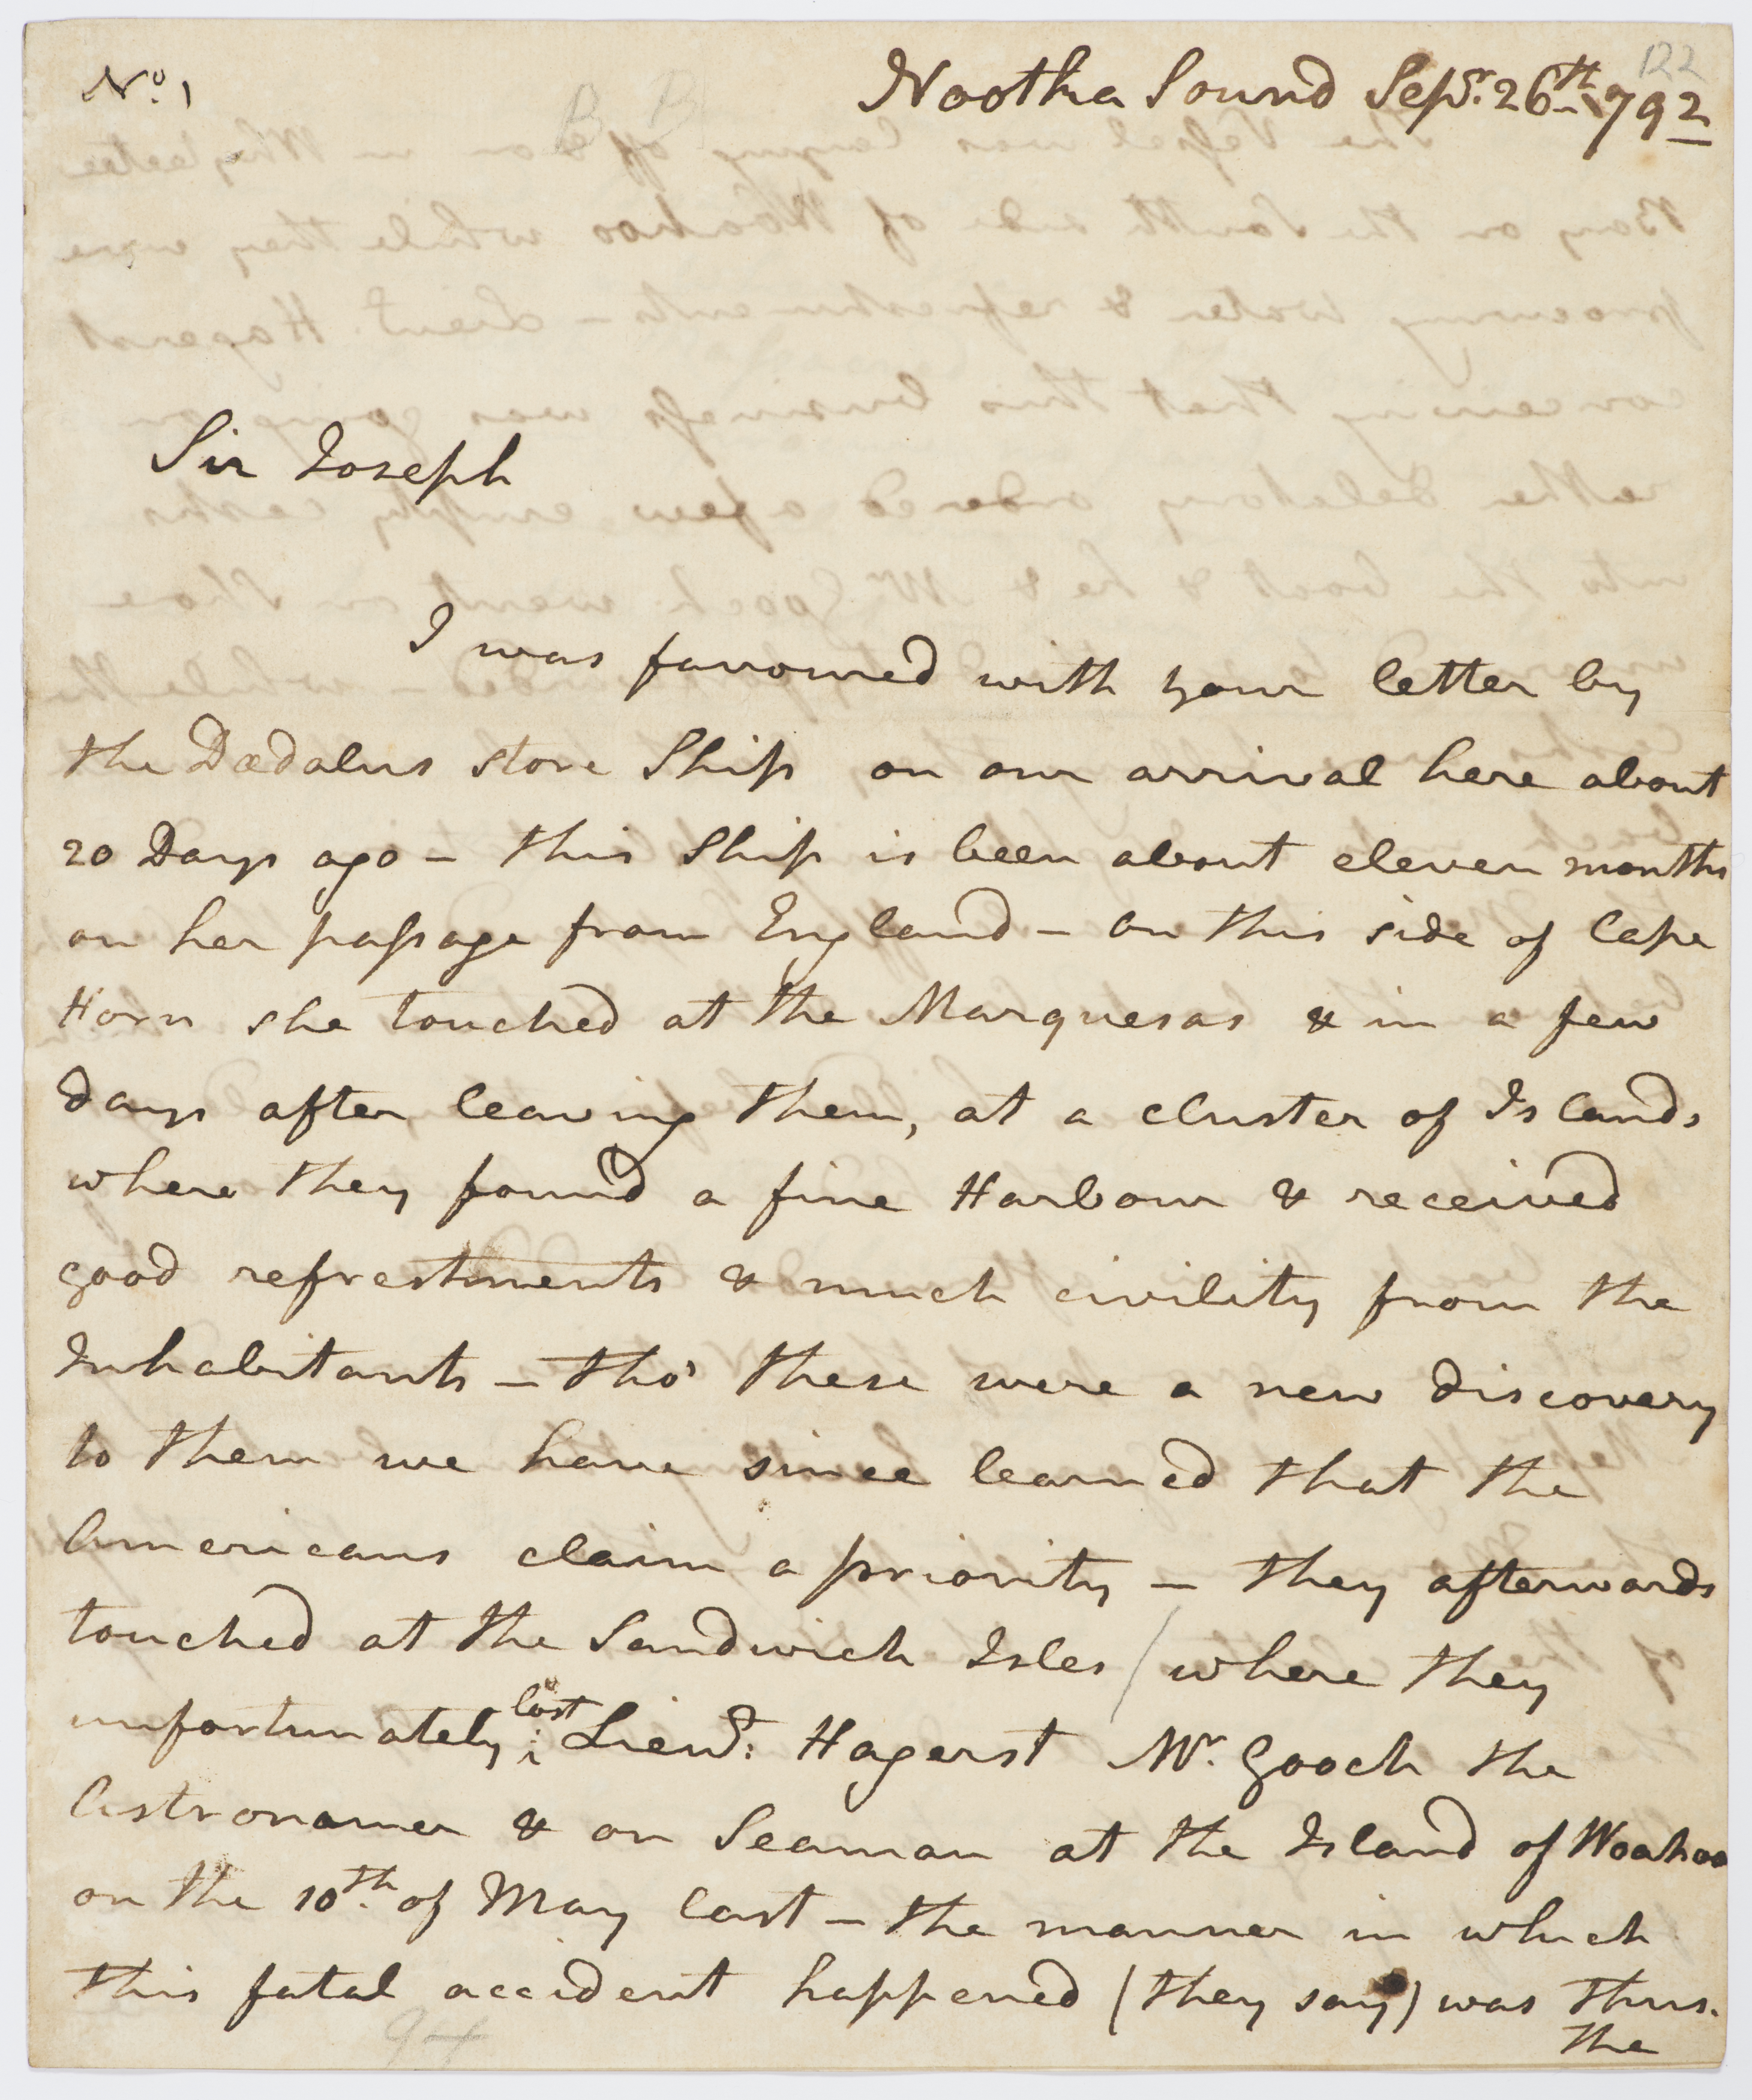 No. 1
122
Nootka Sound Sepr. 26th 1792
B B
Sir Joseph
I was favoured with your letter by
the Dædalus store Ship on our arrival here about
20 Days ago – this Ship is been about eleven months
on her passage from England – on this side of Cape
Horn she touched at the Marquesas & in a few
days after leaving them, at a cluster of Islands
where they found a fine Harbour & received
good refrestments & much civility from the
Inhabitants – tho' these were a new discovery
to them we have since learned that the
Americans claim a priority – they afterwards
touched at the Sandwich Isles / where they
unfortunately lost Lieut: Hagerst Mr. Gooch the
Astronomer & on Seaman at the Island of Woahoo
on the 10th. of May last – the manner in which
this fatal accident happened (they say) was thus.
the
94